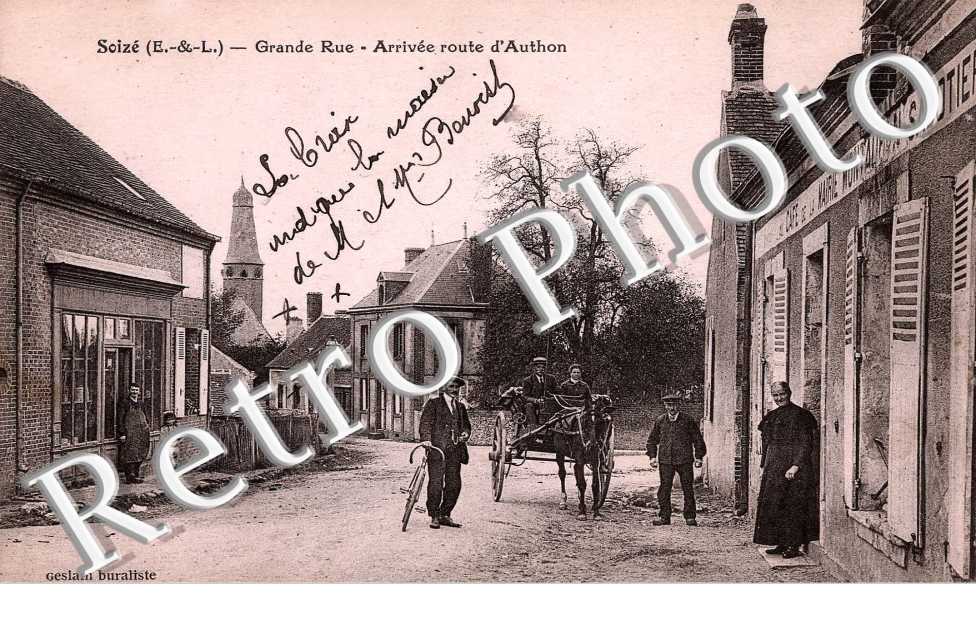 Soizé (E.-&-L.) — Grande Rue - Arrivée route d'Authon
La Croix
indique la maison
de M et Mme
+ +
CAFÉ DE LA MAIRIE
Retro Photo
Geslain buraliste